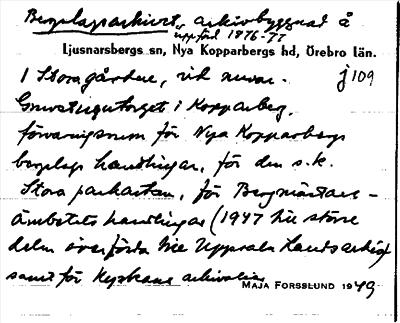 Bergslagsarkivet, arkivbyggnad å
uppförd 1876-77
Ljusnarsbergs sn, Nya Kopparbergs hd, Örebro län.
I Stora gården, vid nuva- j 109
Gruvstugutorget i Kopparberg,
förvaringsrum för Nya Kopparbergs
bergslags handlingar, för den s.k.
Stora parkartan, för Bergmästare-
ämbetets handlingar (1947 till större
delen överförda till Uppsala Landsarkiv)
samt för kyrkans arkivalier
MAJA FORSSLUND 1949